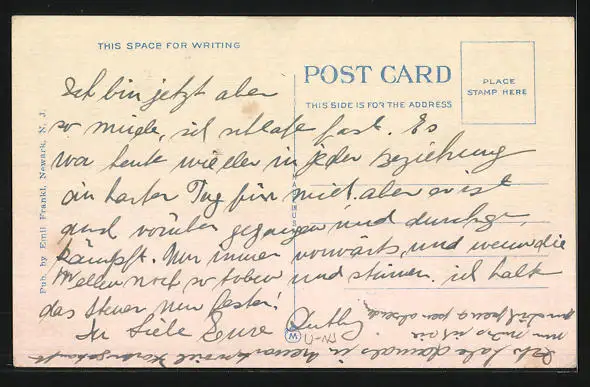 THIS SPACE FOR WRITING
POST CARD
THIS SIDE IS FOR THE ADDRESS
PLACE
STAMP HERE
Pub. by Emil Frankl, Newark, N. J.
Ich bin jetzt aber
so müde, ich schlafe fast. Es
war heute wieder in jeder Beziehung
ein harter Tag für mich. aber er ist
auch vorüber gegangen und durchge-
kämpft. Nur immer vorwärts, und wenn die
Wellen noch so toben und stürmen. ich halte
das Steuer nun fester!
In Liebe Eure
W